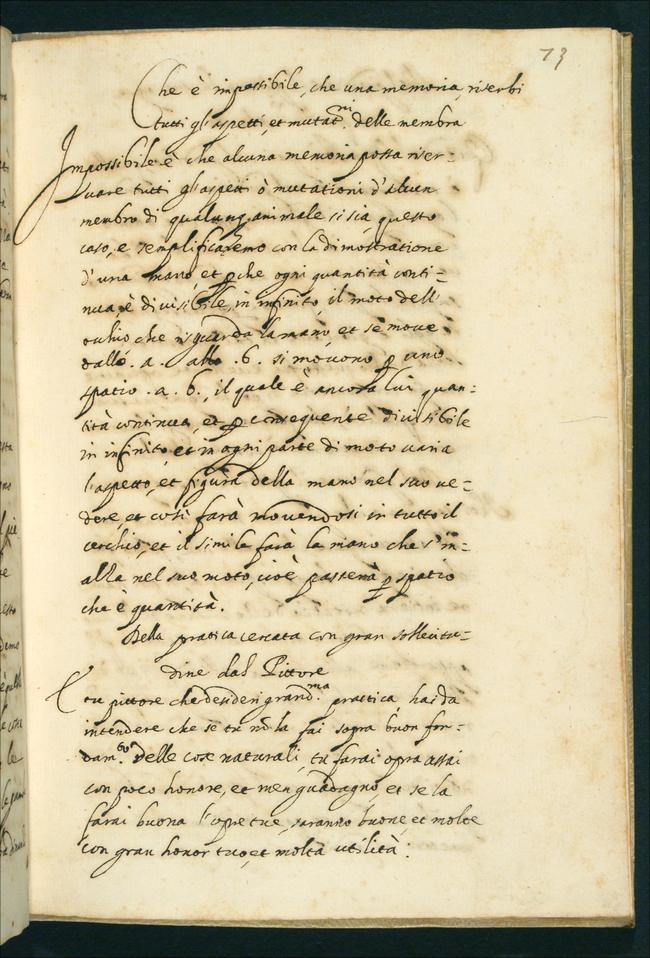 73
Che è impossibile, che una memoria, riserbi
tutti gl'aspetti, et mutat.ni delle membra
Impossibile è che alcuna memoria possa riser-
uare tutti gl'aspetti ò mutationi d'alcun
membro di qualunq. animale si sia, questo
caso, e semplificaremo con la dimostratione
d'una mano, et p che ogni quantità conti-
nua, è diuisibile, in infinito, il moto dell'
ochio che risguarda la mano, et se moue
dallo .a. allo .b. si mouono p uno
spatio .a. b., il quale è ancora lui quan-
tità continua, et p consequente diuisibile
in infinito et in ogni parte di moto uaria
l'aspetto, et figura della mano nel suo ue-
dere, et così farà mouendosi in tutto il
cerchio, et il simile farà la mano che s'in-
alza nel suo moto, cioè passerà p spatio
che è quantità.
Della pratica cercata con gran sollecitu-
dine dal Pittore
E tu pittore che desideri grand.ma prattica, hai da
intendere che se tu nõ la fai sopra buon fon-
dam.to delle cose naturali, tu farai opra assai
con poco honore, et men guadagno, et se la
farai buona l'opre tue, saranno buone, et molte
con gran honor tuo, et molta utilità.